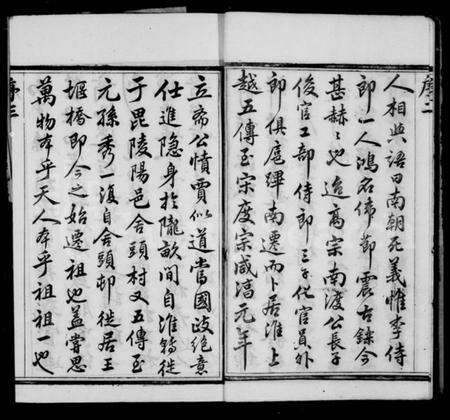 序二
人相與語曰南朝死義惟李侍
郎一人鴻名偉節震古鑠今
甚赫〻也迨高宗南渡公長子
俊官工部侍郎三子代官員外
郎俱扈蹕南遷而卜居淮上
越五傳至宋度宗咸淳元年
立齋公憤賈似道當國政絶意
仕進隐身於隴畝間自淮轉徙
于毘陵陽邑舍頭村又五傳至
元孫秀一復自舍頭邨徙居王
堰橋即今之始遷祖也盖嘗思
萬物本乎天人本乎祖祖一也
序三